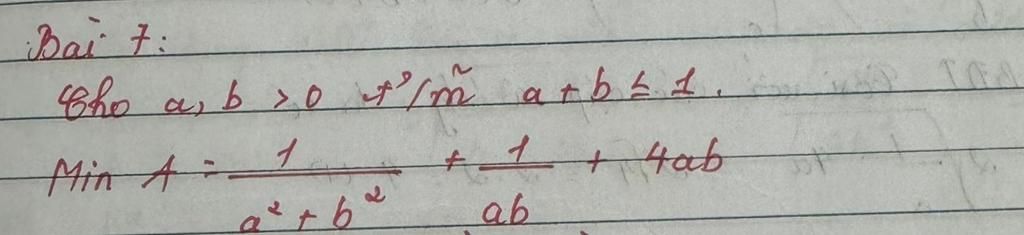 Bài 7:
Cho a, b > 0 t/m̃ a + b ≤ 1.
Min A = 1/(a² + b²) + 1/(ab) + 4ab